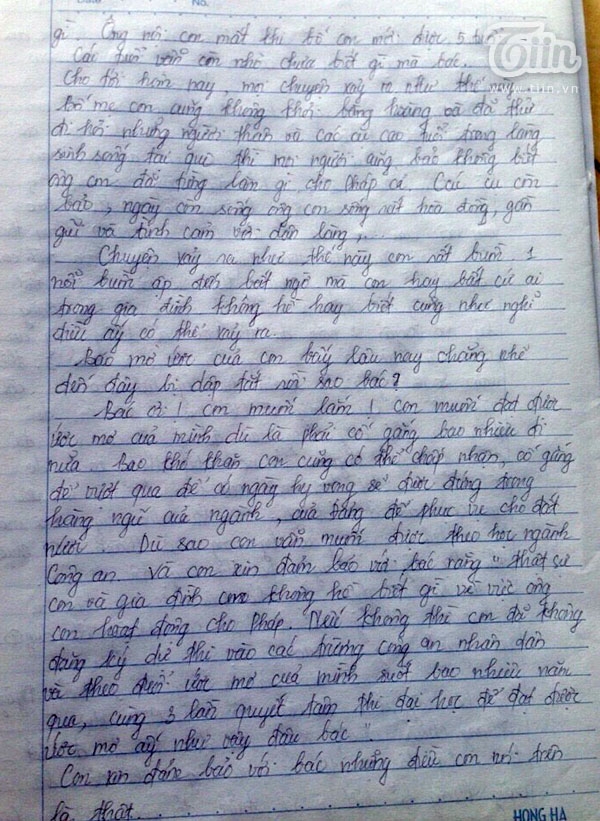 Date No.
gì. Ông nội con mất khi bố con mới được 5 tuổi
Cái tuổi vẫn còn nhỏ chưa biết gì mà bác.
Tiin
www.tiin.vn
Cho tới hôm nay, mọi chuyện xảy ra như thế này
bố mẹ con cũng không khỏi bàng hoàng và đã thử
đi hỏi những người thân và các cụ cao tuổi trong làng
sinh sống tại quê thì mọi người cũng bảo không biết
ông con đã từng làm gì cho Pháp cả. Các cụ còn
bảo, ngày còn sống ông con sống rất hòa đồng, gần
gũi và tình cảm với dân làng,..
Chuyện xảy ra như thế này con rất buồn 1
nỗi buồn ập đến bất ngờ mà con hay bất cứ ai
trong gia đình không hề hay biết cũng như nghĩ
điều ấy có thể xảy ra.
Bao mơ ước của con bấy lâu nay chẳng nhẽ
đến đây bị dập tắt rồi sao bác?
Bác ơi! con muốn lắm! con muốn đạt được
ước mơ của mình dù là phải cố gắng bao nhiêu đi
nữa. Bao khó khăn con cũng có thể chấp nhận, cố gắng
để vượt qua để có ngày hy vọng sẽ được đứng trong
hàng ngũ của ngành, của Đảng để phục vụ cho đất
nước. Dù sao con vẫn muốn được theo học ngành
Công an. Và con xin đảm bảo với bác rằng "thật sự
con và gia đình con không hề biết gì về việc ông
con hoạt động cho Pháp. Nếu không thì con đã không
đăng ký dự thi vào các trường công an nhân dân
và theo đuổi ước mơ của mình suốt bao nhiêu năm
qua, cùng 3 lần quyết tâm thi đại học để đạt được
ước mơ ấy như vậy đâu bác"
Con xin đảm bảo với bác những điều con nói trên
là thật.
HONG HA